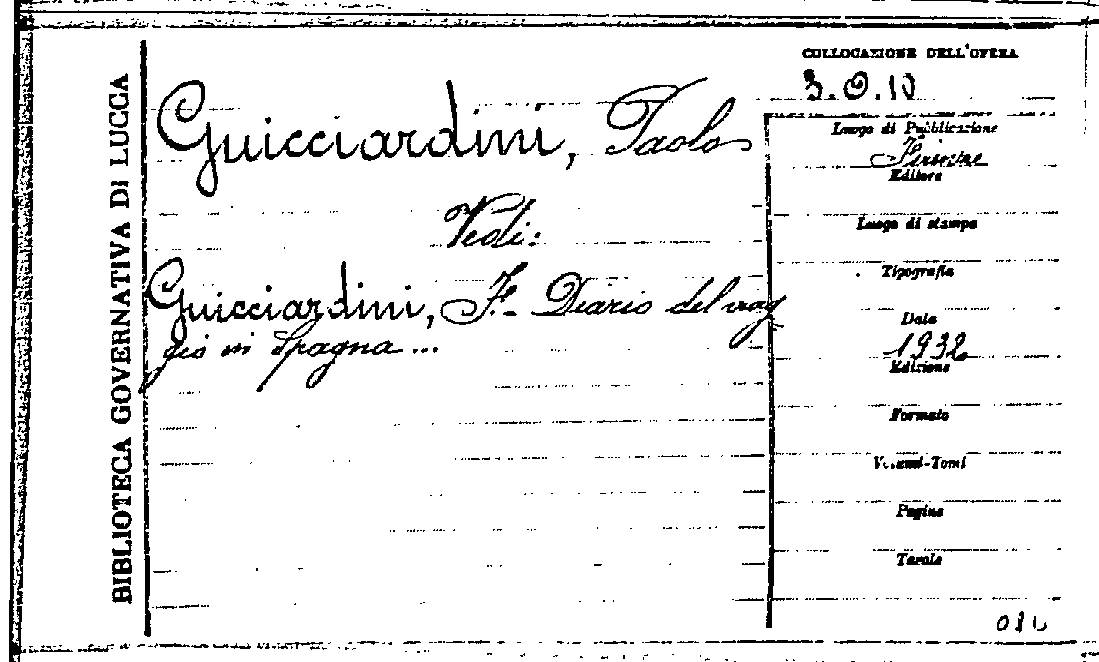 BIBLIOTECA GOVERNATIVA DI LUCCA
Guicciardini, Paolo
Vedi:
Guicciardini, F. - Diario del viag
gio in Spagna...
COLLOCAZIONE DELL'OPERA
3.O.10
Luogo di Pubblicazione
Firenze
Editore
Luogo di stampa
Tipografia
Data
1932
Edizione
Formato
Volumi-Tomi
Pagine
Tavole